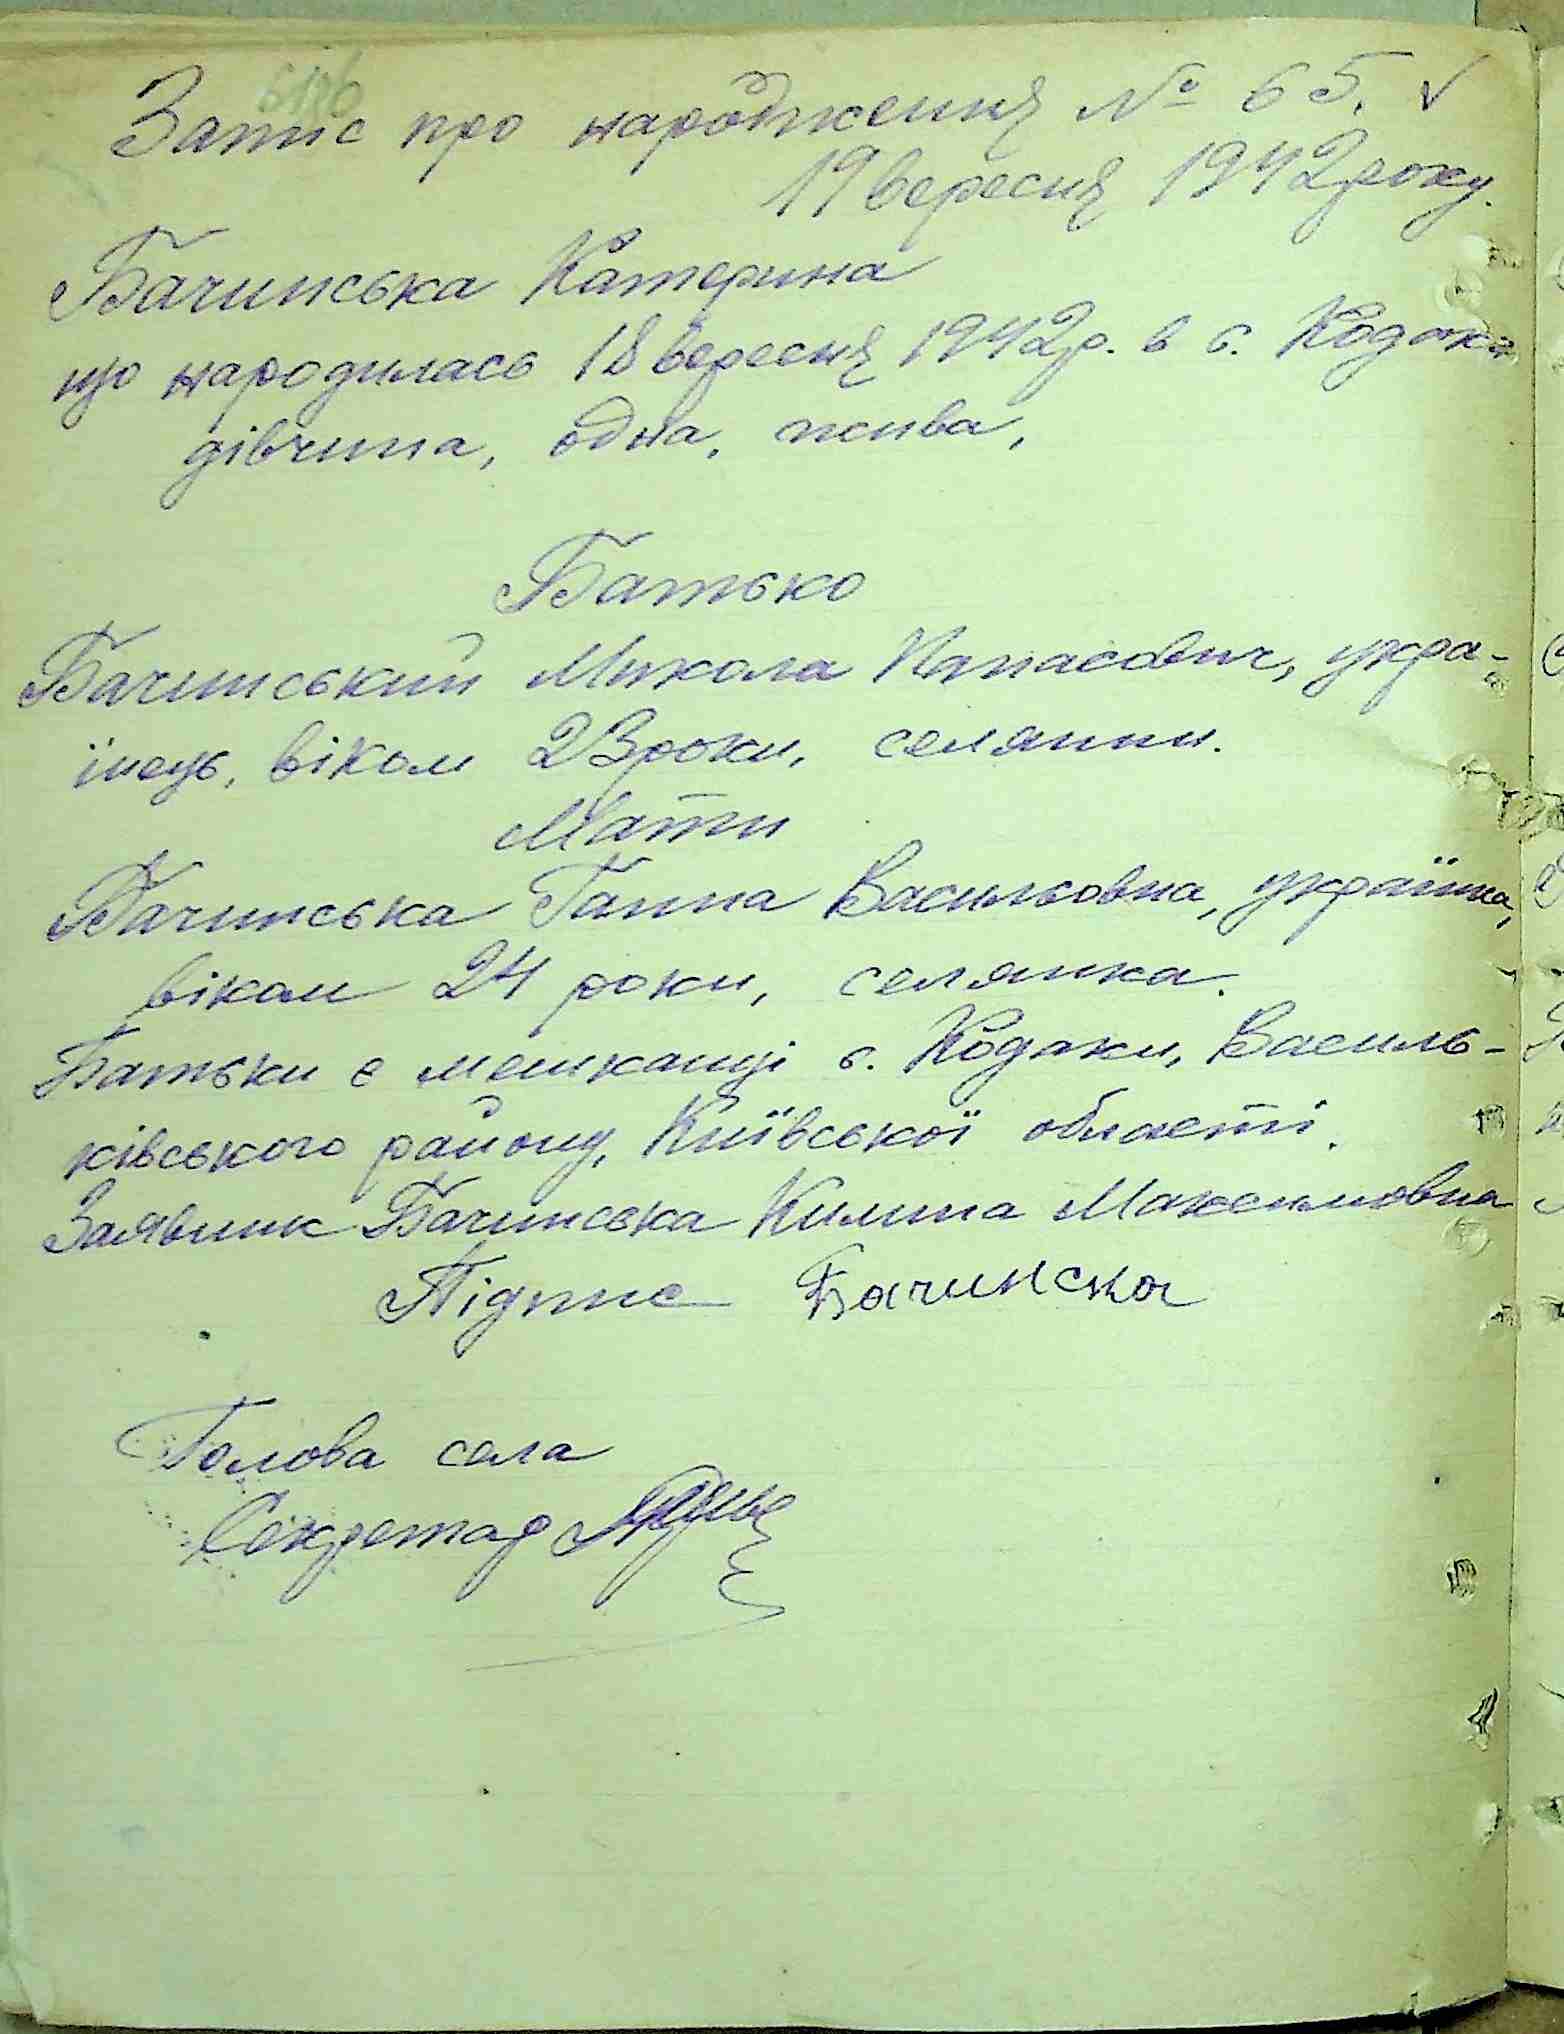 Запис про народження № 65. ✓
19 вересня 1942 року.
Бачинська Катерина
що народилась 18 вересня 1942 р. в с. Кодаки
дівчина, одна, жива,
Батько
Бачинський Микола Панасович, укра-
їнець, віком 23 роки, селянин.
Мати
Бачинська Ганна Васильовна, українка,
віком 24 роки, селянка.
Батьки є мешканці с. Кодаки, Василь-
ківського району, Київської області.
Заявник Бачинська Килина Максимовна
Підпис Бачинска
Голова села
Секретар